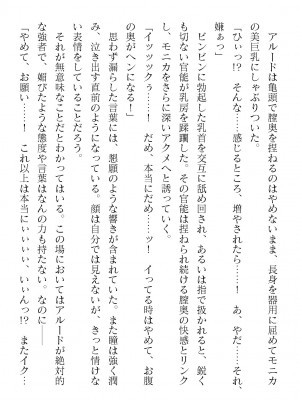 アルードは亀頭で膣奥を捏ねるのはやめないまま、長身を器用に屈めてモニカ
の美巨乳にしゃぶりついた。
「ひぃっ!?　そんな……！　感じるところ、増やされたら……！　あ、やだ……それ、
嫌ぁっ」
ビンビンに勃起した乳首を交互に舐め回され、あるいは指で扱かれると、鋭く
も切ない官能が乳房を蹂躙した。その官能は捏ねられ続ける膣奥の快感とリンク
し、モニカをさらに深いアクメへと誘っていく。
「イッッックぅ……！　だめ、本当にだめ……ッ！　イってる時はやめて、お腹
の奥がヘンになる！」
思わず漏らした言葉には、懇願のような響きが含まれていた。また瞳は強く潤
み、泣き出す直前のようになっている。顔は自分では見えないが、きっと情けな
い表情をしていることだろう。
それが無意味なことだとわかってはいる。この場においてはアルードが絶対的
な強者で、媚びたような態度や言葉はなんの力も持たない。なのに――
「やめて、お願い……！　これ以上は本当にぃぃぃ、いぃんっ!?　またイク…